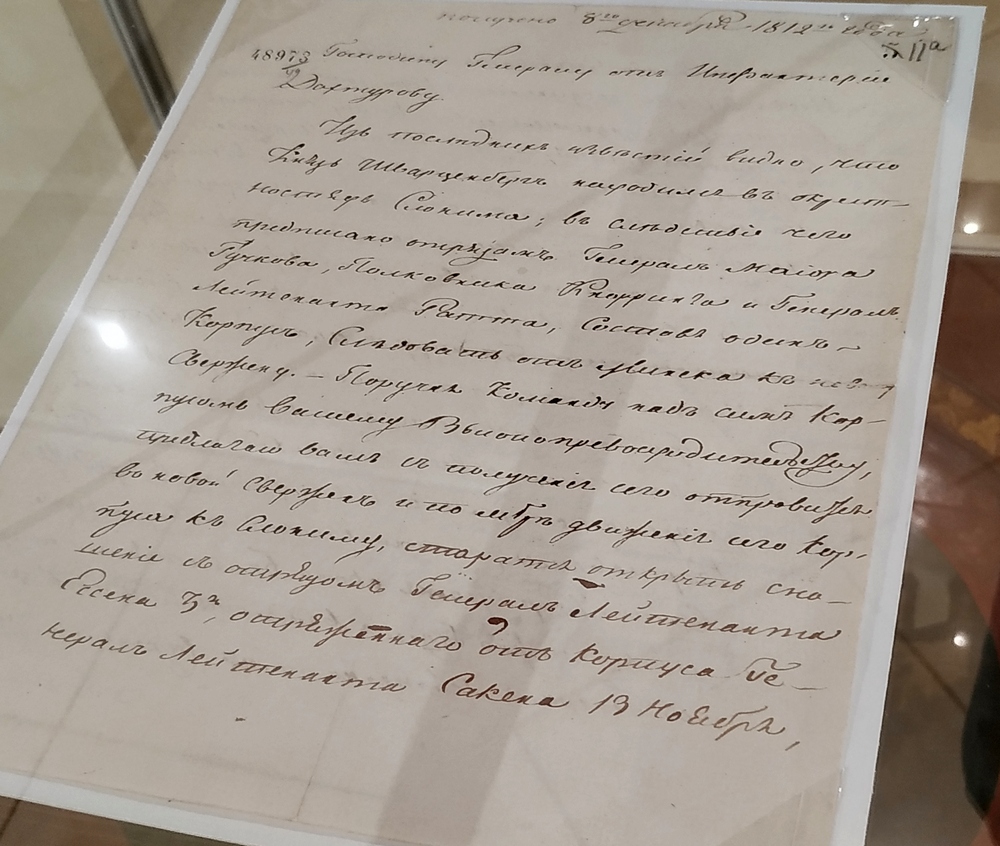 получено 8го декабря 1812го года
№ 11а
48973
Господину Генералу отъ Инфантеріи
Дохтурову
Изъ послѣднихъ извѣстій видно, что
Князь Шварценбергъ находился въ окрест-
ностяхъ Слонима; въ слѣдствіе чего
предписано отрядамъ Генералъ Маіора
Тучкова, Полковника Кнорринга и Генералъ
Лейтенанта Ратта, Составя одинъ
Корпусъ, Слѣдовать отъ Минска къ новому
Сверженю. — Поручая Команду надъ симъ Кор-
пусомъ Вашему Высокопревосходительству,
предлагаю вамъ съ полученія сего отправиться
въ новой Свержень и по мѣрѣ движенія сего Кор-
пуса къ Слониму, стараться открыть сно-
шеніе съ отрядомъ Генералъ Лейтенанта
Ессена 3го, отряженнаго отъ Корпуса Ге-
нералъ Лейтенанта Сакена 13 Ноября,